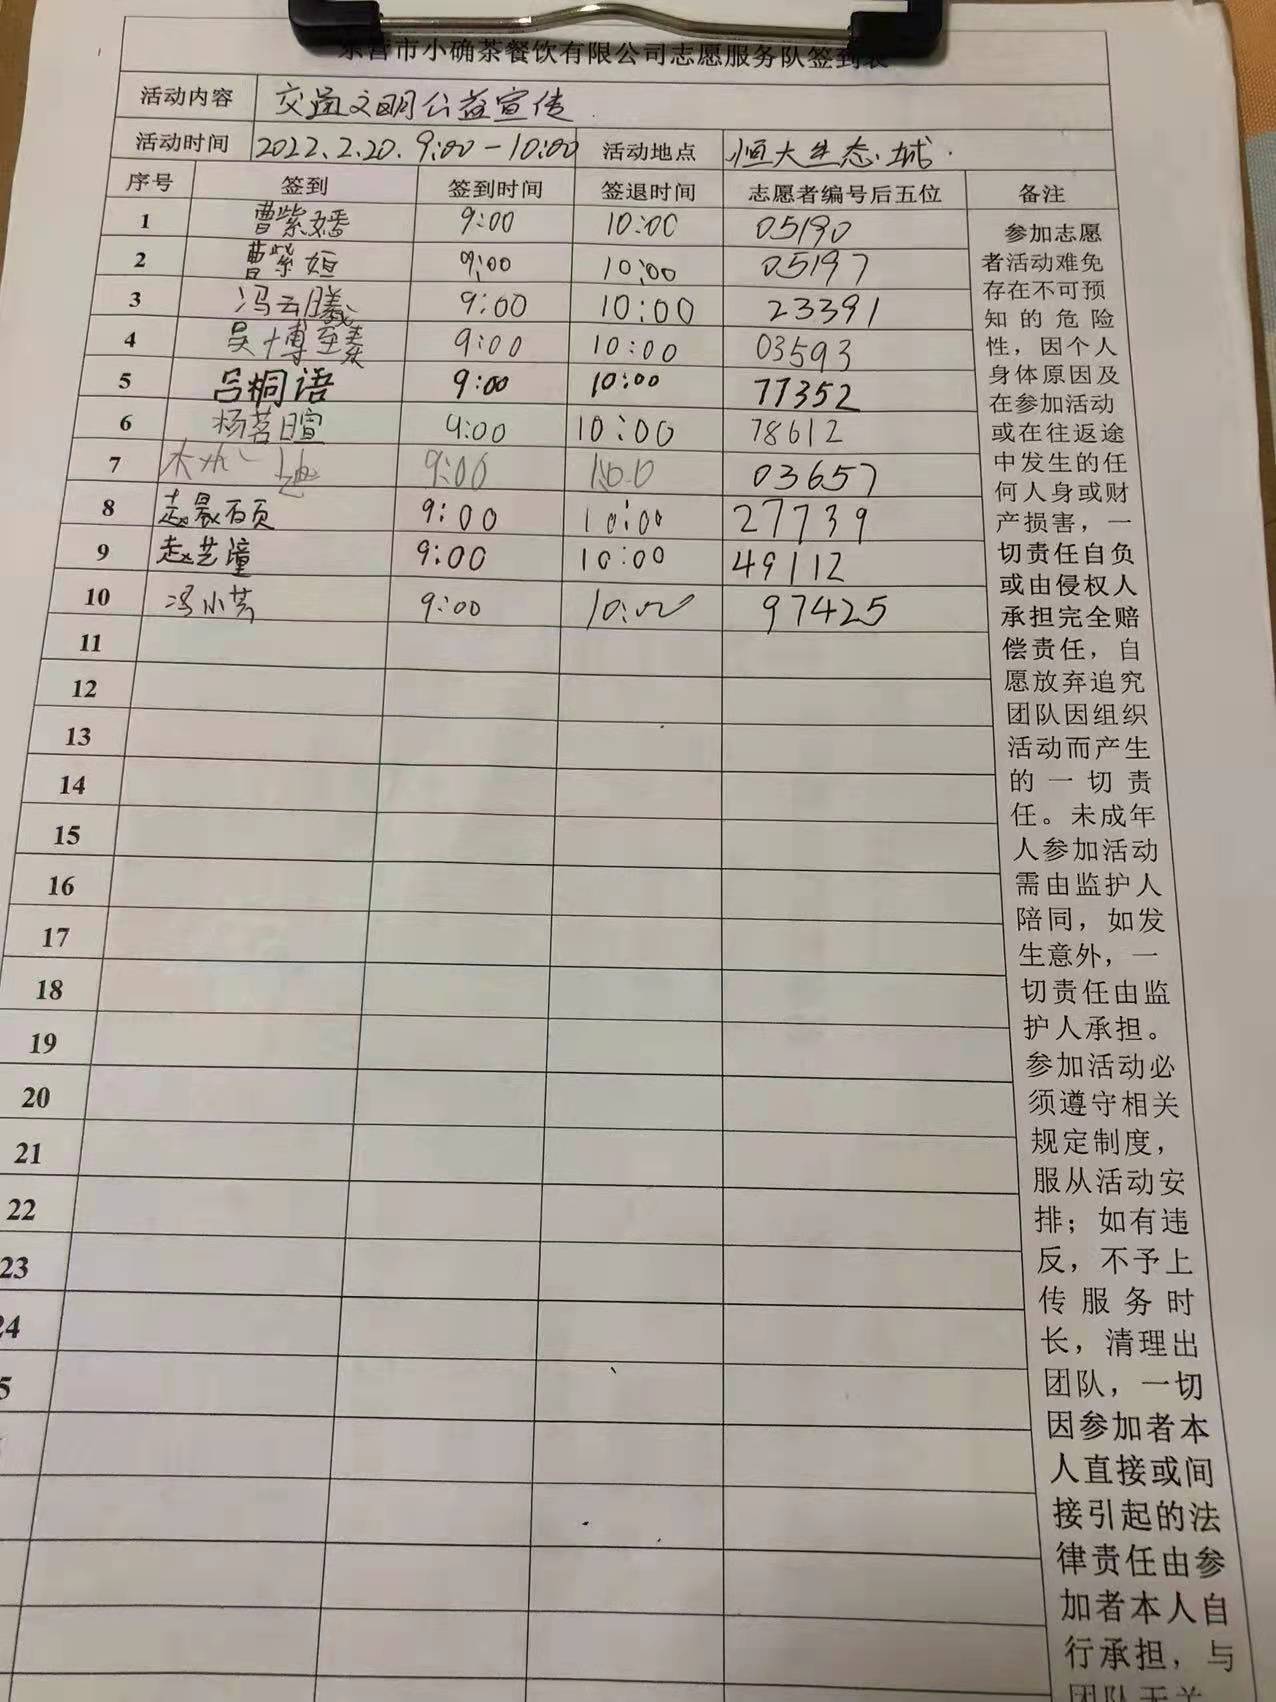 东营市小确茶餐饮有限公司志愿服务队签到表
活动内容 交通文明公益宣传
活动时间 2022.2.20. 9:00-10:00 活动地点 恒大生态城.
序号 签到 签到时间 签退时间 志愿者编号后五位 备注
1 曹紫嬏 9:00 10:00 05190
2 曹紫姮 9:00 10:00 05197
3 冯云曦 9:00 10:00 23391
4 吴博 9:00 10:00 03593
5 吕桐语 9:00 10:00 77352
6 杨茗暄 9:00 10:00 78612
7 9:00 03657
8 赵晨 9:00 10:00 27739
9 赵艺潼 9:00 10:00 49112
10 冯小芸 9:00 10:00 97425
11
12
13
14
15
16
17
18
19
20
21
22
23
24
5
参加志愿
者活动难免
存在不可预
知的危险
性，因个人
身体原因及
在参加活动
或在往返途
中发生的任
何人身或财
产损害，一
切责任自负
或由侵权人
承担完全赔
偿责任，自
愿放弃追究
团队因组织
活动而产生
的一切责
任。未成年
人参加活动
需由监护人
陪同，如发
生意外，一
切责任由监
护人承担。
参加活动必
须遵守相关
规定制度，
服从活动安
排；如有违
反，不予上
传服务时
长，清理出
团队，一切
因参加者本
人直接或间
接引起的法
律责任由参
加者本人自
行承担，与
团队无关